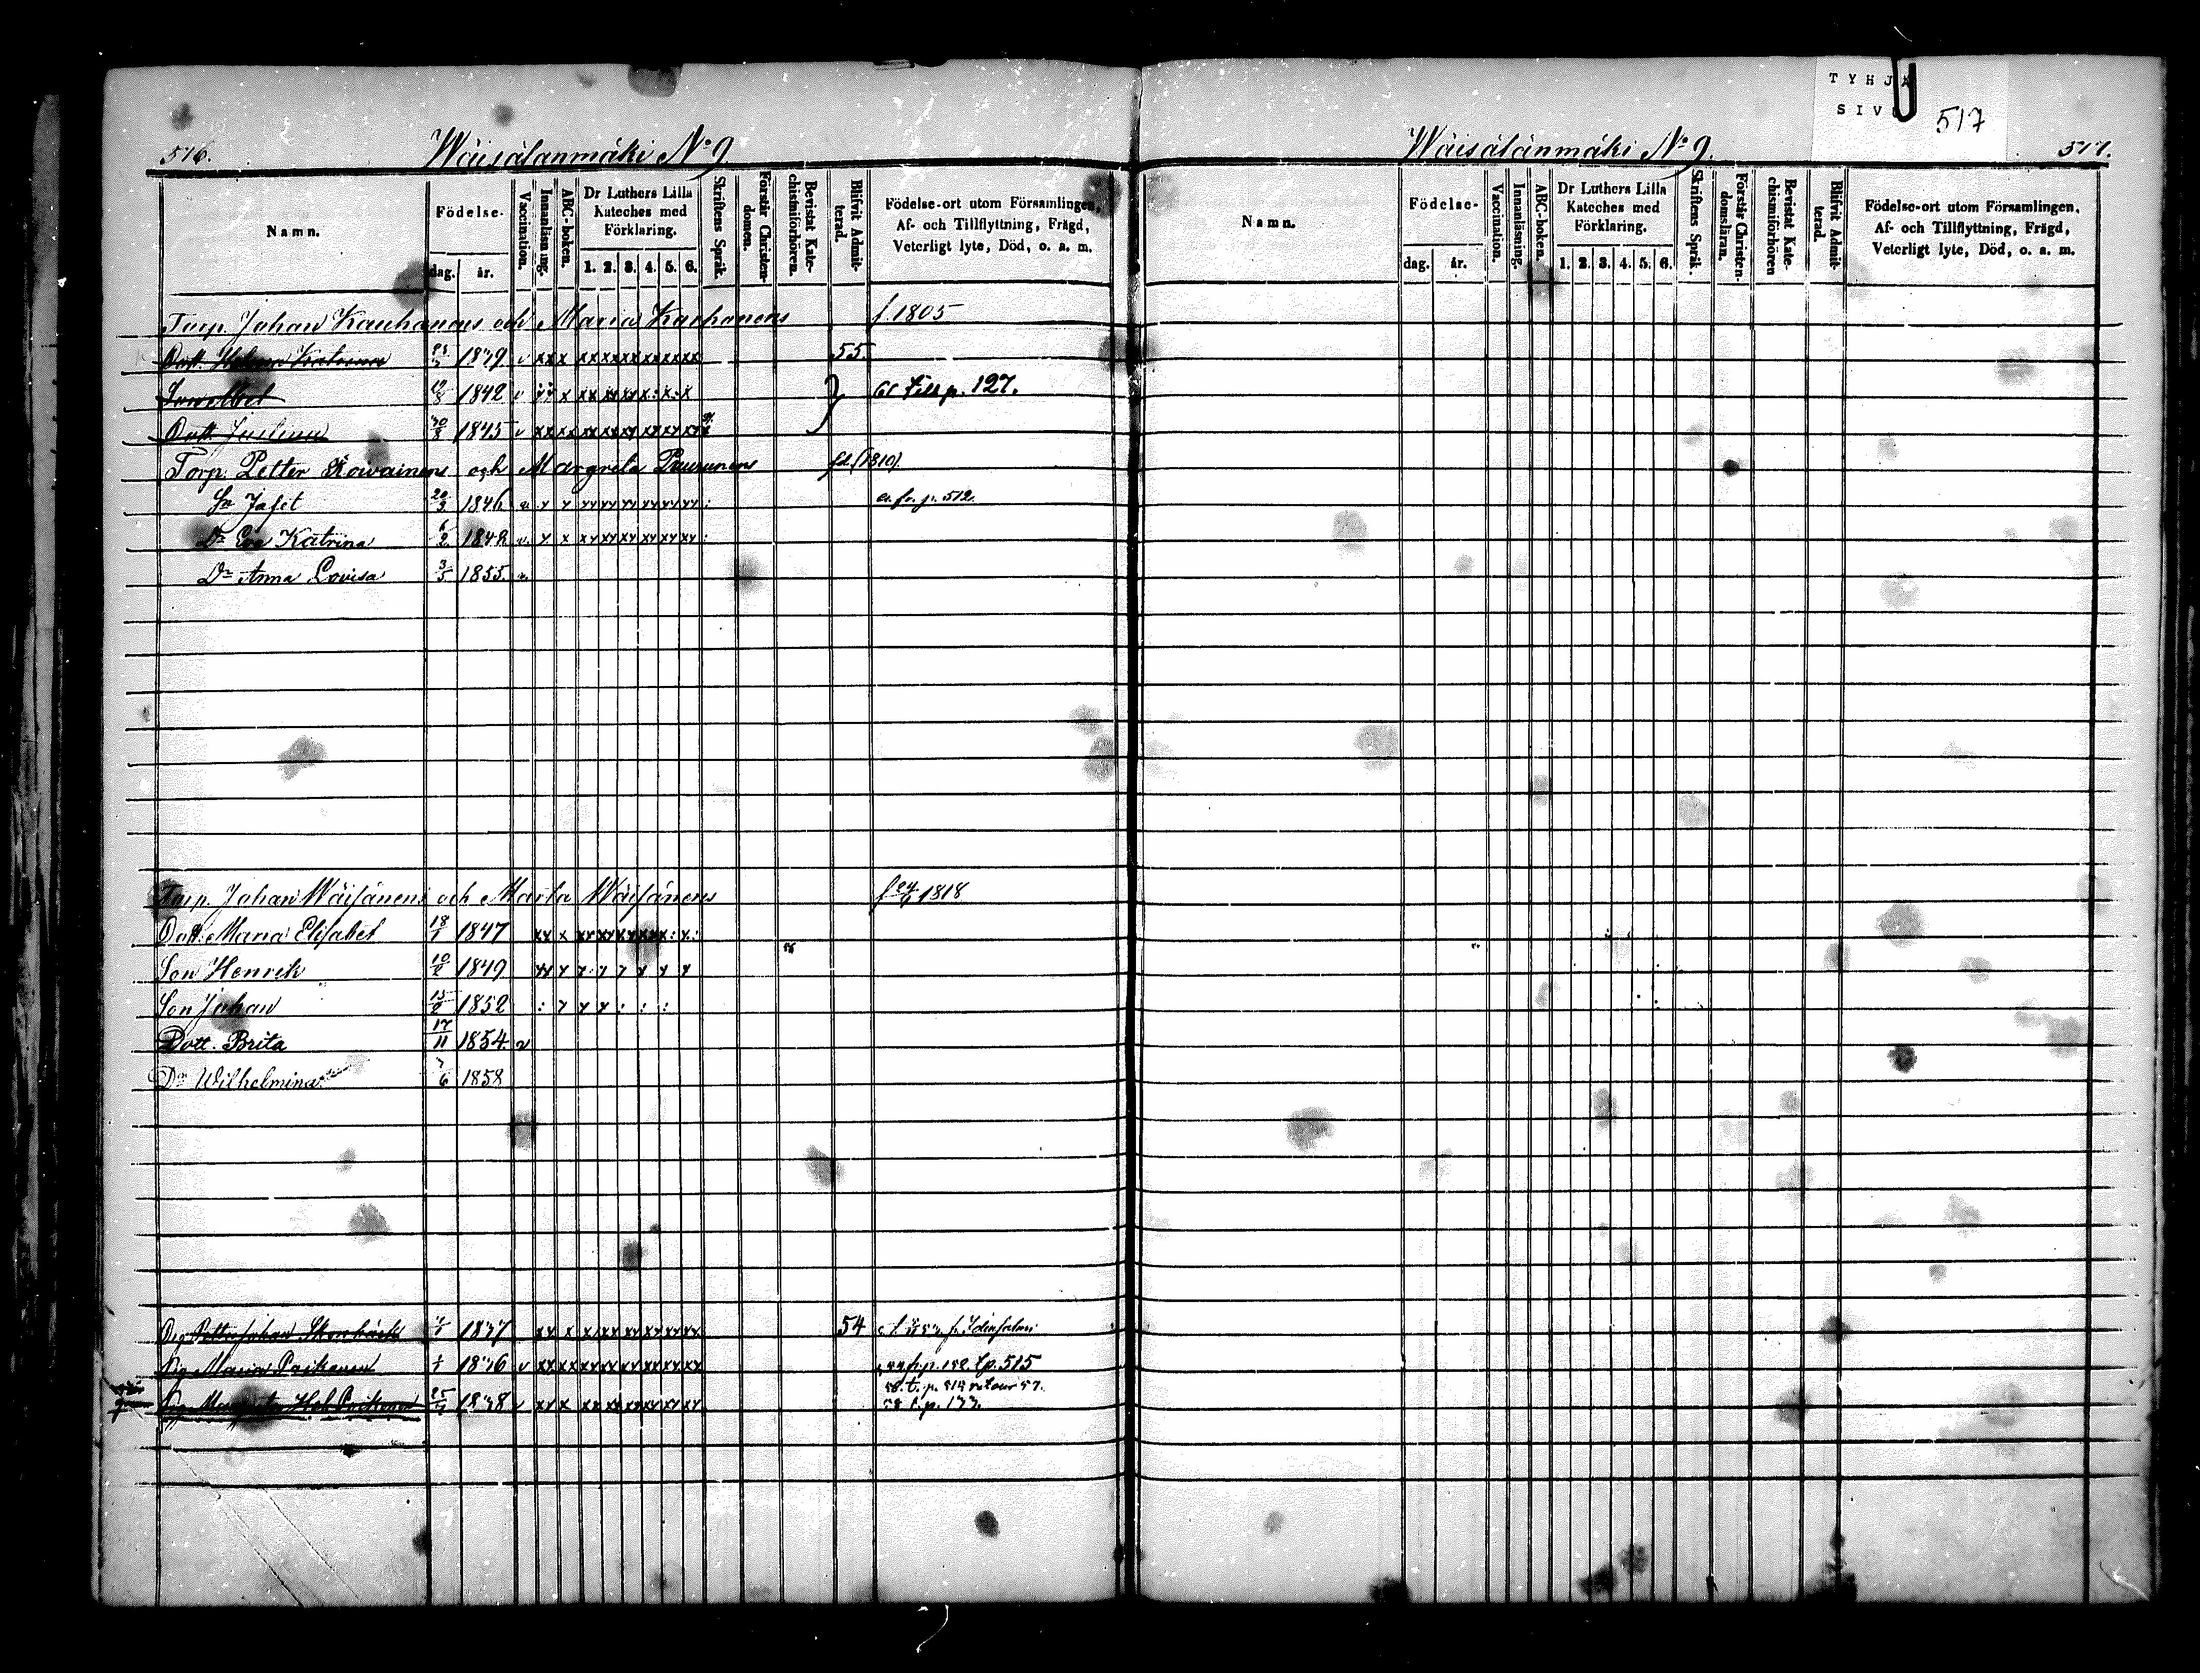 TYHJÄ
SIVU
517
516.
Wäisälänmäki No 9
Wäisälänmäki No 9.
517.
Namn.
Födelse-
dag. år.
Vaccination.
Innanläsning.
ABC-boken.
Dr Luthers Lilla Kateches med Förklaring.
1. 2. 3. 4. 5. 6.
Skriftens Språk.
Förstår Christendomen.
Bevistat Katechismiförhören.
Blifvit Admitterad.
Födelse-ort utom Församlingen,
Af- och Tillflyttning, Frägd,
Veterligt lyte, Död, o. a. m.
Namn.
Födelse-
dag. år.
Vaccination.
Innanläsning.
ABC-boken.
Dr Luthers Lilla Kateches med Förklaring.
1. 2. 3. 4. 5. 6.
Skriftens Språk.
Förstår Christendomsläran.
Bevistat Katechismiförhören
Blifvit Admitterad.
Födelse-ort utom Församlingen,
Af- och Tillflyttning, Frägd,
Veterligt lyte, Död, o. a. m.
Torp. Johan Kauhanens och Maria Kauhanens f. 1805
Dott. Helena Katrina 1839 v xx x xx xx xx xx xx xx 55
1842 v x xx xx xx 61 till p. 127.
Dott. 1845 v xx xx xx xx xx xx xx xx
Torp. Petter och Margreta fd. (1810)
Sn Jafet 20/3 1846 v. y y yy yy yy yy yy yy : p. 512.
Dr Eva Katrina 6/2 1848 v. y x xy xy xy xy xy xy :
Dr Anna Lovisa 3/5 1855. v.
Torp. Johan Wäisänens och Maria Wäisänens f. 24/6 1818
Dott. Maria Elisabet 18/1 1847 xx x
Son Henrik 10/2 1849 xx y y y y y y y
Son Johan 15/2 1852 : y y y : : :
Dott. Brita 17/11 1854. v
Dr Wilhelmina 7/6 1858
Petter Johan 1837 xx x xx xx xx xx xx xx 54 Idensalmi
Maria Paikonen 1836 v xx xx xx xx xx xx xx xx p. 152 t.p. 515
58. t. p. 514 retour 57.
Margreta Hel. Paikonen 25/ 1838 v xx x xx xx xx xx xx xx 58 t. p. 133.